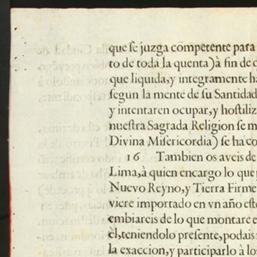 que se juzga competente para
to de toda la quenta) à fin de
que liquida, y integramente ha
segun la mente de su Santidad
y intentaren ocupar, y hostiliz
nuestra Sagrada Religion se m
Divina Misericordia) se ha co
16 Tambien os aveis de
Lima, à quien encargo lo que
Nuevo Reyno, y Tierra Firme
viere importado en vn año est
embiareis de lo que montare e
èl, teniendolo presente, podais
la exaccion, y participarlo à lo